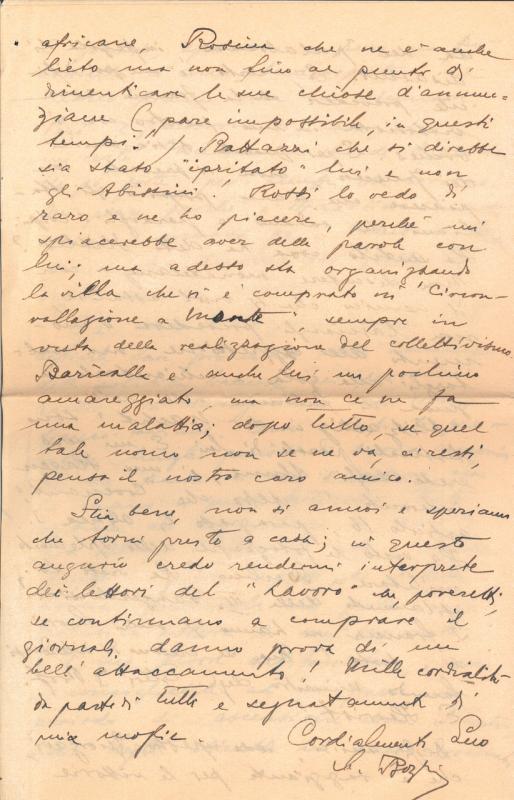 africane, Rosina che ne è anche
lieto ma non fino al punto di
dimenticare le sue chiose d'annun-
ziane (pare impossibile, in questi
tempi!) Rattazzi che si direbbe
sia stato "ipritato" lui e non
gli Abissini! Rossi lo vedo di
raro e ne ho piacere, perchè mi
spiacerebbe aver delle parole con
lui; ma adesso sta organizzando
la villa che si è comprato in "Circon-
vallazione a Monte", sempre in
vista della realizzazione del collettivismo.
Baricalla è anche lui un pochino
amareggiato, ma non ce ne fa
una malattia; dopo tutto, se quel
tale uomo non se ne va, ci resti,
pensa il nostro caro amico.
Stia bene, non si annoi e speriamo
che torni presto a casa; in questo
augurio credo rendermi interprete
dei lettori del "Lavoro" che, poveretti,
se continuano a comprare il
giornale, danno prova di un
bell'attaccamento! Mille cordialità
da parte di tutti e segnatamente di
mia moglie.
Cordialmente Suo